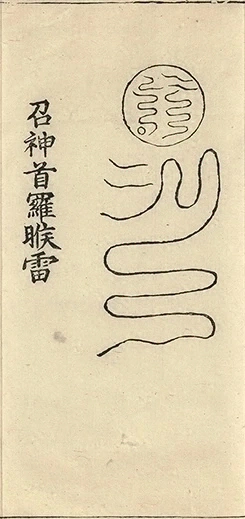 召神首羅睺雷